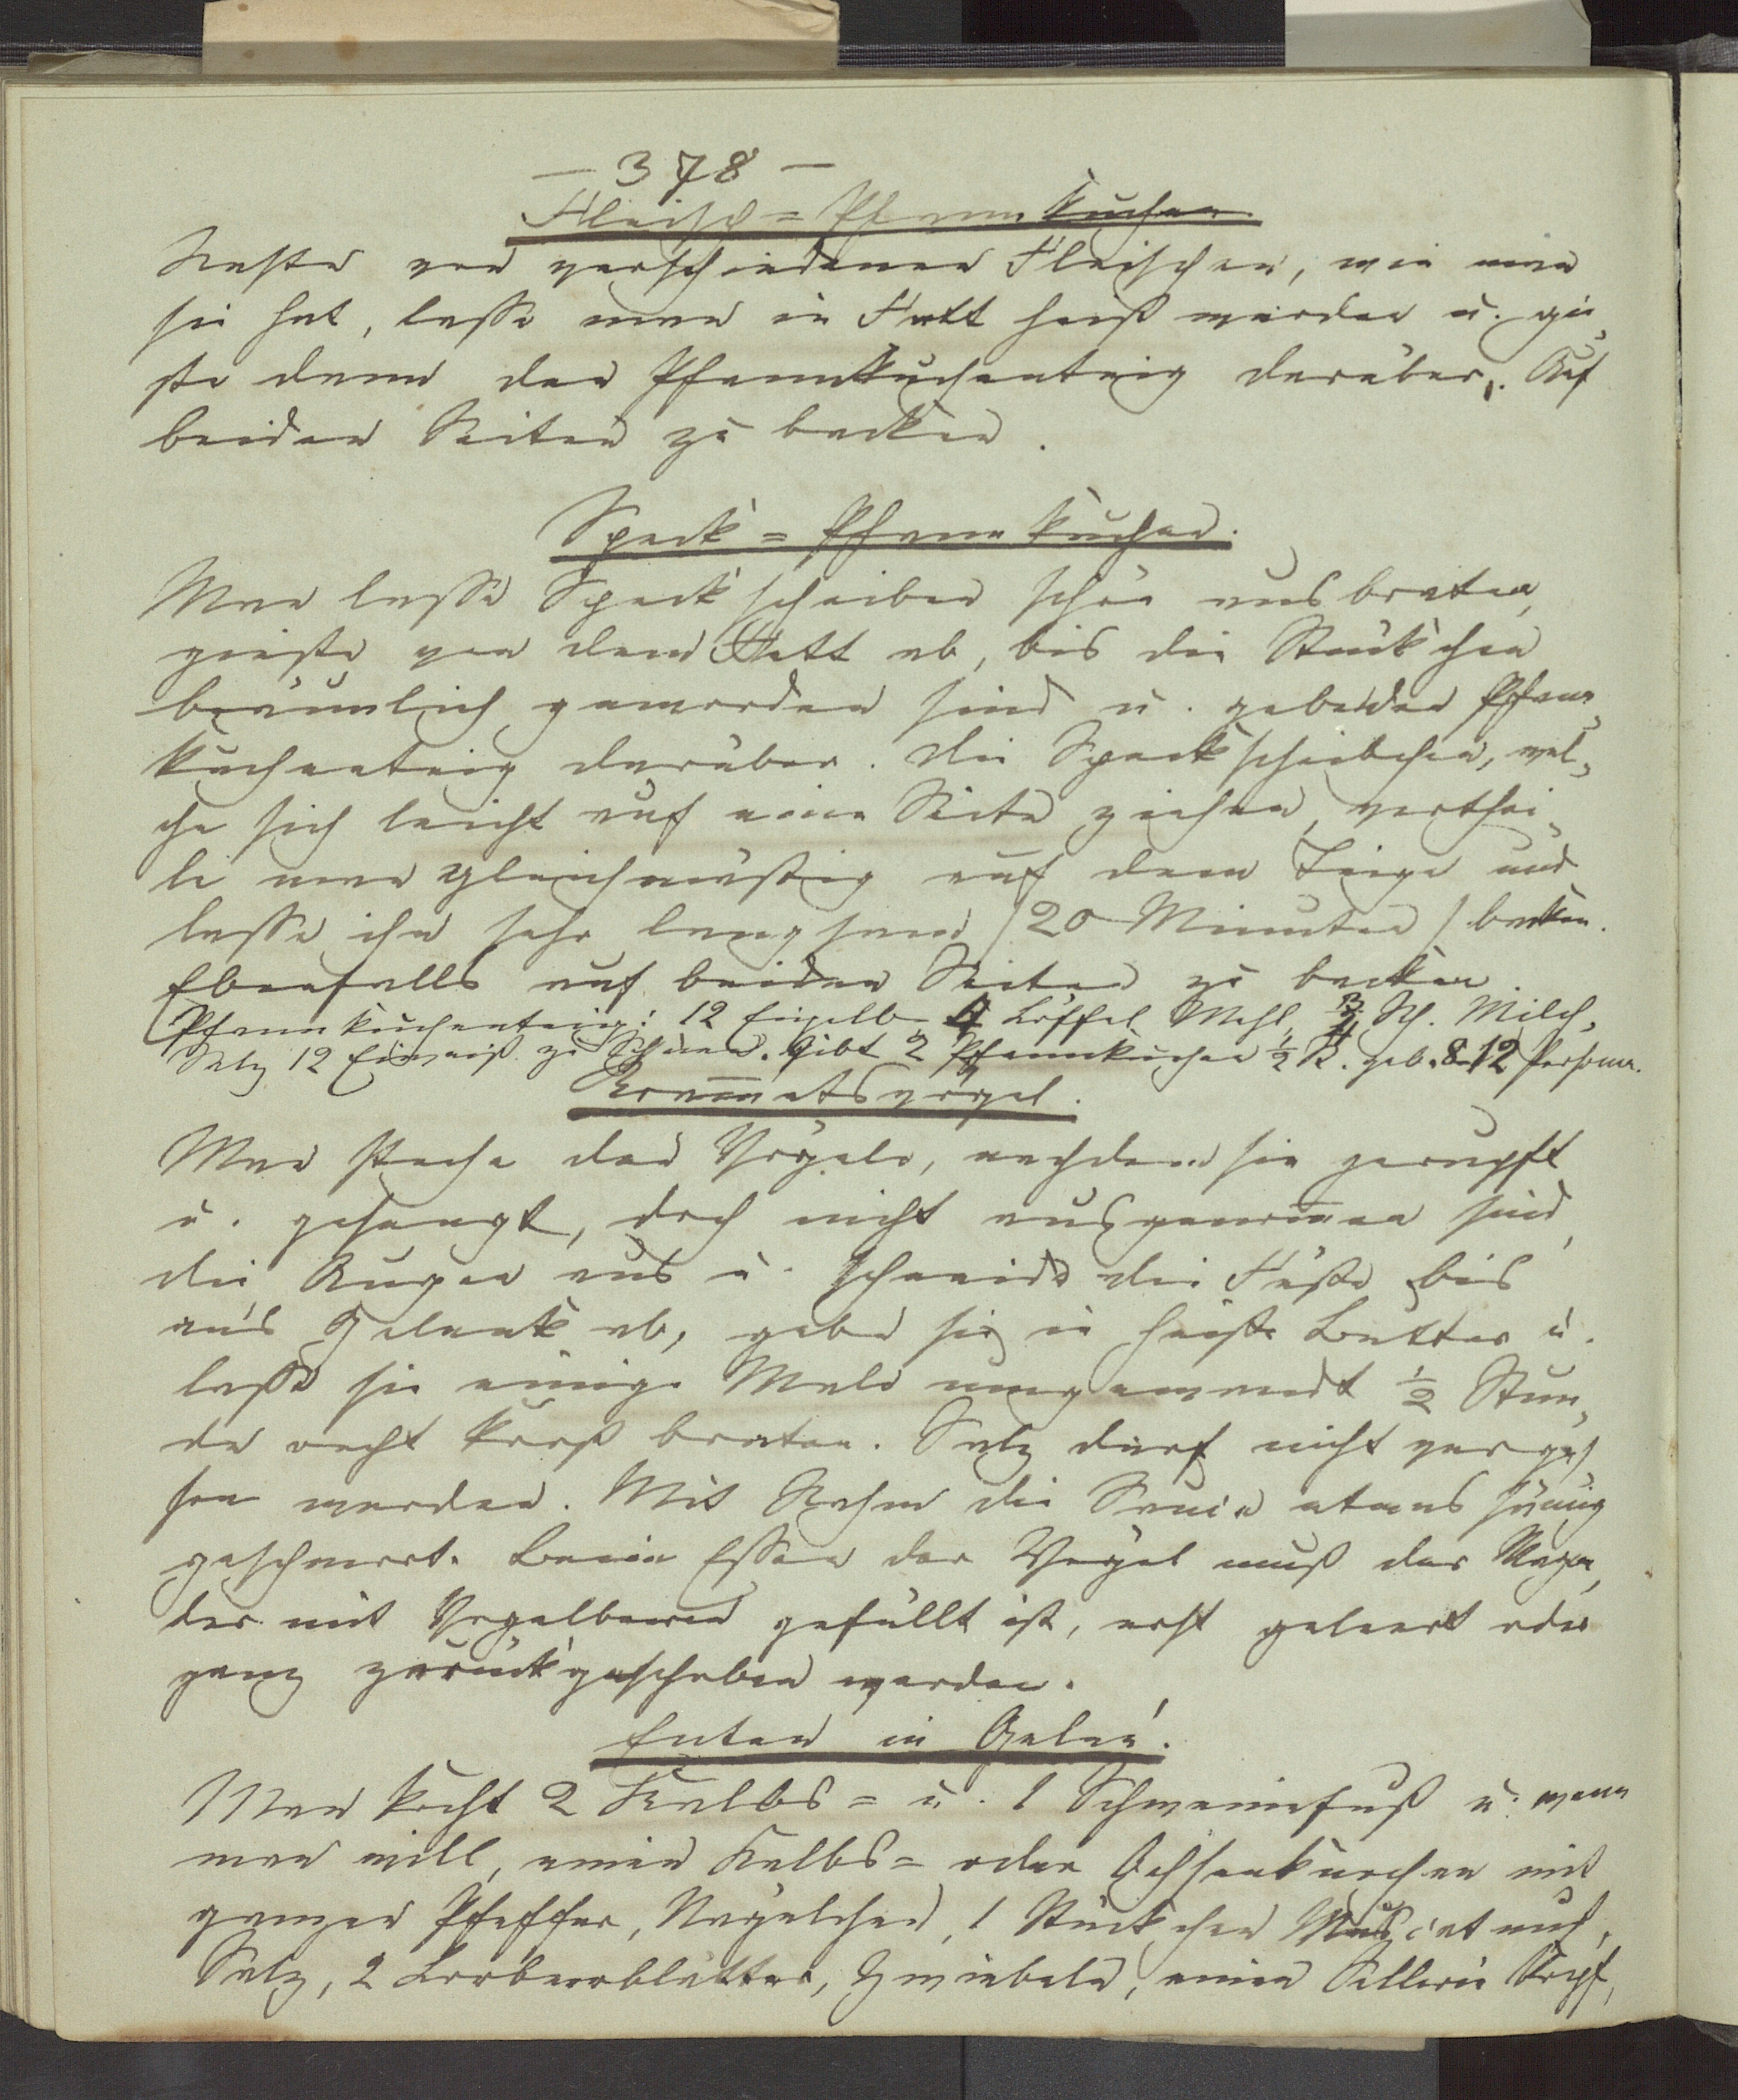 — 378 —
Fleisch=Pfannkuchen.
Reste von verschiedenen Fleischen, wie man
sie hat, lasse man in Fett heiß werden u. gie„
ße dann den Pfannkuchenteig darüber. Auf
beiden Seiten zu backen.
Speck=Pfannkuchen.
Man lasse Speckscheiben schön ausbraten,
gieße von dem Fett ab, bis die Stückchen
bräunlich geworden sind u. gebe den Pfann„
kuchenteig darüber. Die Speckscheibchen, wel„
che sich leicht auf eine Seite ziehen, verthei„
le man gleichmäßig auf dem Teige und
lasse ihn sehr langsam /20 Minuten/ backen.
Ebenfalls auf beiden Seiten zu backen.
Pfannkuchenteig: 12 Eigelb 4 Löffel Mehl, Sch. Milch,
Salz 12 Eiweiß zu Schnee. Gibt 2 Pfannkuchen ½ R. geb. 8-12 Personen.
Krammetsvögel.
Man steche den Vögeln, nachdem sie gerupft
u. gesengt, doch nicht ausgenom̅en sind,
die Augen aus u. schneide die Füße bis
an's Gelenk ab, gebe sie in heiße Butter u.
lasse sie einige Male umgewandt ½ Stun„
de recht kroß braten. Salz darf nicht verges
sen werden. Mit Rahm die Sauce etwas sämig
geschmort. Beim Essen der Vögel muß der Magen,
der mit Vogelbeeren gefüllt ist, erst geleert oder
ganz zurückgeschoben werden.
Enten in Gelée.
Man kocht 2 Kalbs= u. 1 Schweinefuß u. wenn
man will, einen Kalbs= oder Ochsenknochen mit
ganzen Pfeffer, Nägelchen, 1 Stückchen Muscatnuß,
Salz, 2 Lorbeerblätter, Zwiebeln, einen Sellerie Kopf,